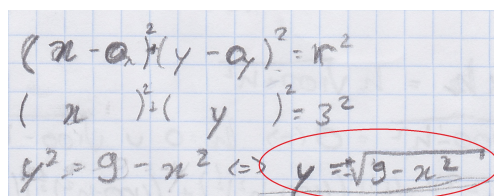 (x - a₁)²+(y - a₂)² = r²
( x )²+( y )² = 3²
y² = 9 - x² <=> y = ±√9 - x²